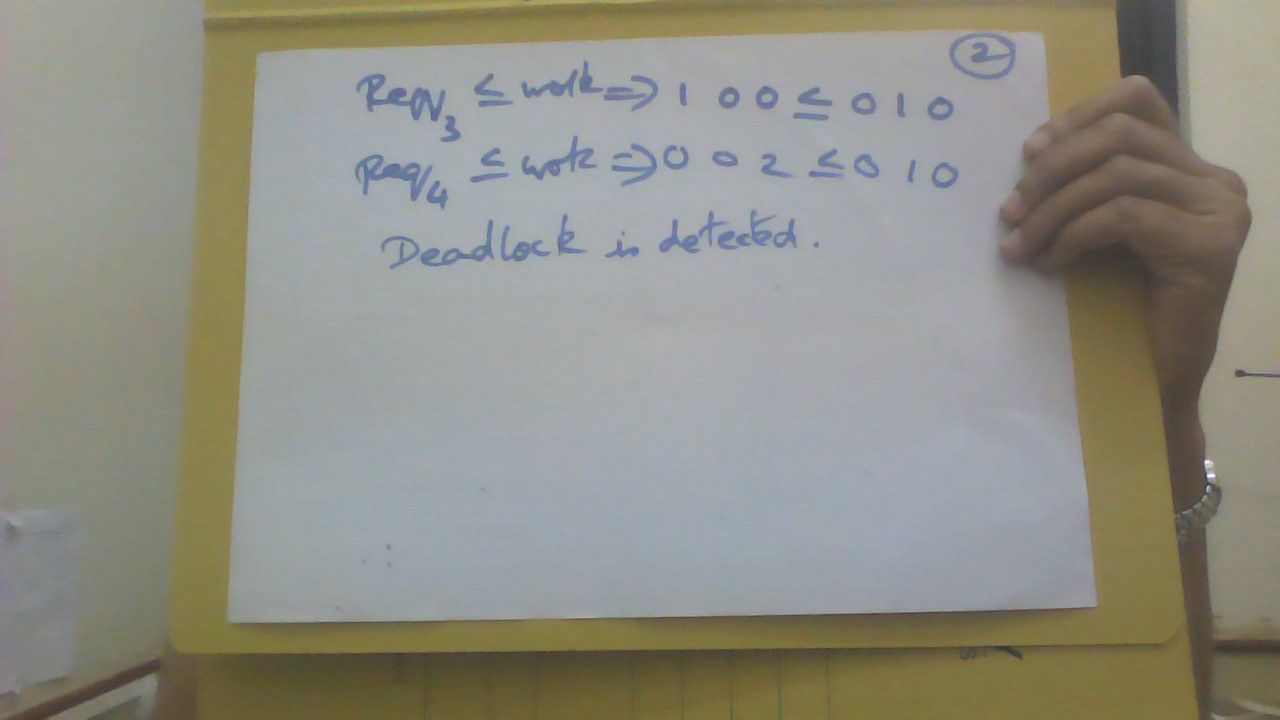 ②
Req3 ≤ work ⇒ 1 0 0 ≤ 0 1 0
Req4 ≤ wok ⇒ 0 0 2 ≤ 0 1 0
Deadlock is detected.